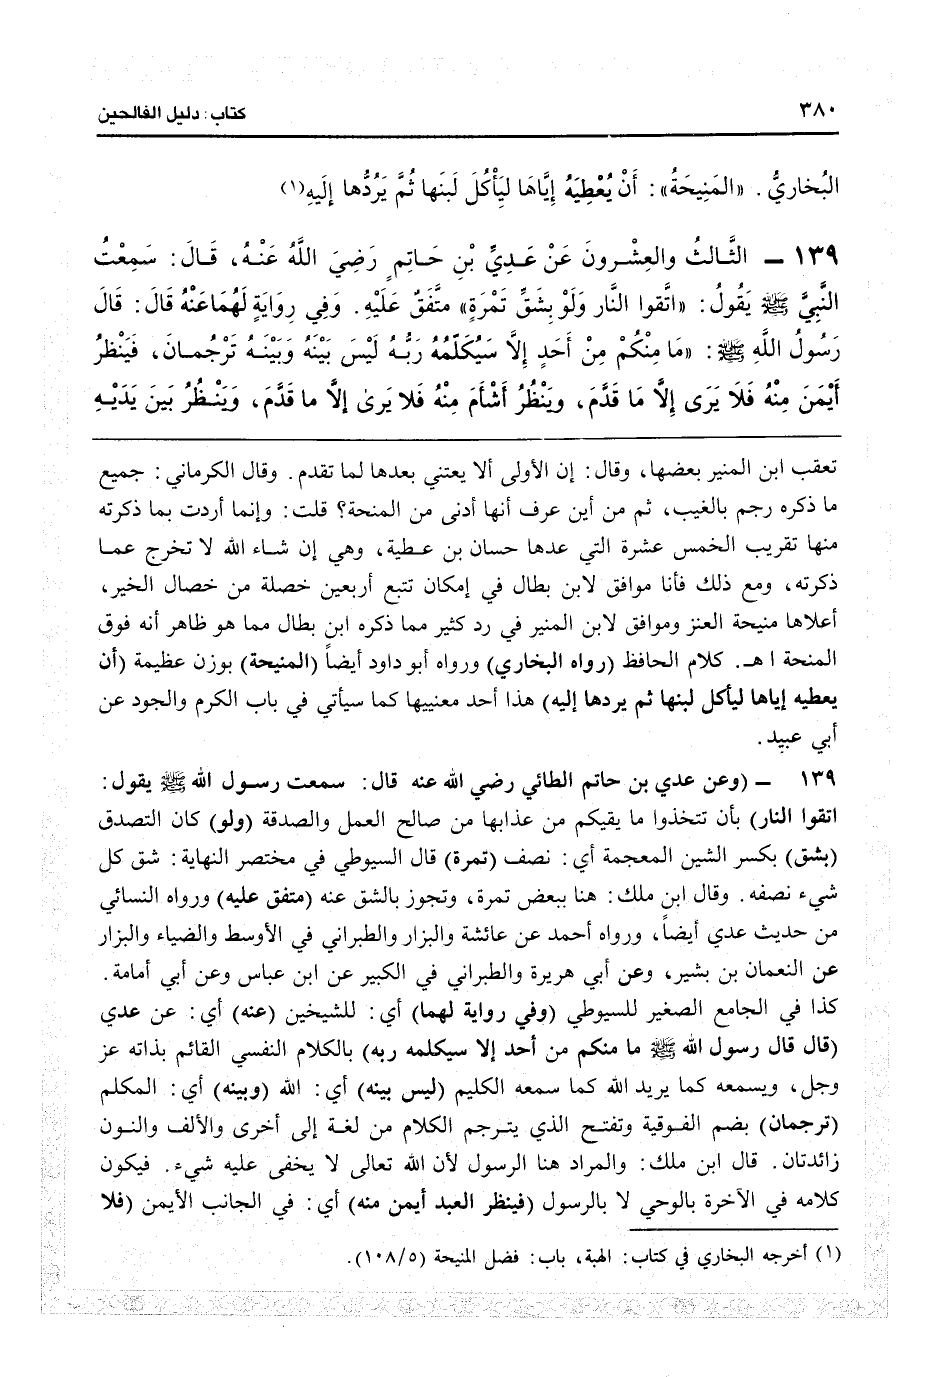 ٣٨٠
كتاب: دليل الفالحين
البُخاريُّ. «المَنِيحَةُ»: أَنْ يُعْطِيَهُ إِيَّاهَا لِيَأْكُلَ لَبَنَها ثُمَّ يَرُدُّها إِلَيهِ(١)
١٣٩ - الثَّالثُ والعِشْرونَ عَنْ عَدِيِّ بْنِ حَاتِمٍ رَضِيَ اللَّهُ عَنْهُ، قَالَ: سَمِعْتُ
النَّبِيَّ ﷺ يَقُولُ: «اتَّقوا النَّار وَلَوْ بِشَقِّ تَمْرَةٍ» متَّفَقٌ عَلَيْهِ. وَفِي رِوايَةٍ لَهُمَا عَنْهُ قَالَ: قَالَ
رَسُولُ اللَّهِ ﷺ: «مَا مِنْكُمْ مِنْ أَحَدٍ إِلَّا سَيُكَلِّمُهُ رَبُّهُ لَيْسَ بَيْنَهُ وَبَيْنَهُ تَرْجُمانَ، فَيَنْظرُ
أَيْمَنَ مِنْهُ فَلَا يَرَى إِلَّا مَا قَدَّمَ، وَيَنْظُرُ أَشْأَمَ مِنْهُ فَلا يَرىٰ إلَّا ما قَدَّمَ، وَيَنْظُرُ بَينَ يَدَيْهِ
تعقب ابن المنير بعضها، وقال: إن الأولى ألا يعتني بعدها لما تقدم. وقال الكرماني: جميع
ما ذكره رجم بالغيب، ثم من أين عرف أنها أدنى من المنحة؟ قلت: وإنما أردت بما ذكرته
منها تقريب الخمس عشرة التي عدها حسان بن عطية، وهي إن شاء الله لا تخرج عما
ذكرته، ومع ذلك فأنا موافق لابن بطال في إمكان تتبع أربعين خصلة من خصال الخير،
أعلاها منيحة العنز وموافق لابن المنير في رد كثير مما ذكره ابن بطال مما هو ظاهر أنه فوق
المنحة اهـ. كلام الحافظ (رواه البخاري) ورواه أبو داود أيضاً (المنيحة) بوزن عظيمة (أن
يعطيه إياها ليأكل لبنها ثم يردها إليه) هذا أحد معنييها كما سيأتي في باب الكرم والجود عن
أبي عبيد.
١٣٩ - (وعن عدي بن حاتم الطائي رضي الله عنه قال: سمعت رسول الله ﷺ يقول:
اتقوا النار) بأن تتخذوا ما يقيكم من عذابها من صالح العمل والصدقة (ولو) كان التصدق
(بشق) بكسر الشين المعجمة أي: نصف (تمرة) قال السيوطي في مختصر النهاية: شق كل
شيء نصفه. وقال ابن ملك: هنا ببعض تمرة، وتجوز بالشق عنه (متفق عليه) ورواه النسائي
من حديث عدي أيضاً، ورواه أحمد عن عائشة والبزار والطبراني في الأوسط والضياء والبزار
عن النعمان بن بشير، وعن أبي هريرة والطبراني في الكبير عن ابن عباس وعن أبي أمامة.
كذا في الجامع الصغير للسيوطي (وفي رواية لهما) أي: للشيخين (عنه) أي: عن عدي
(قال قال رسول الله ﷺ ما منكم من أحد إلا سيكلمه ربه) بالكلام النفسي القائم بذاته عز
وجل، ويسمعه كما يريد الله كما سمعه الكليم (ليس بينه) أي: الله (وبينه) أي: المكلم
(ترجمان) بضم الفوقية وتفتح الذي يترجم الكلام من لغة إلى أخرى والألف والنون
زائدتان. قال ابن ملك: والمراد هنا الرسول لأن الله تعالى لا يخفى عليه شيء. فيكون
كلامه في الآخرة بالوحي لا بالرسول (فينظر العبد أيمن منه) أي: في الجانب الأيمن (فلا
(١) أخرجه البخاري في كتاب: الهبة، باب: فضل المنيحة (١٠٨/٥).